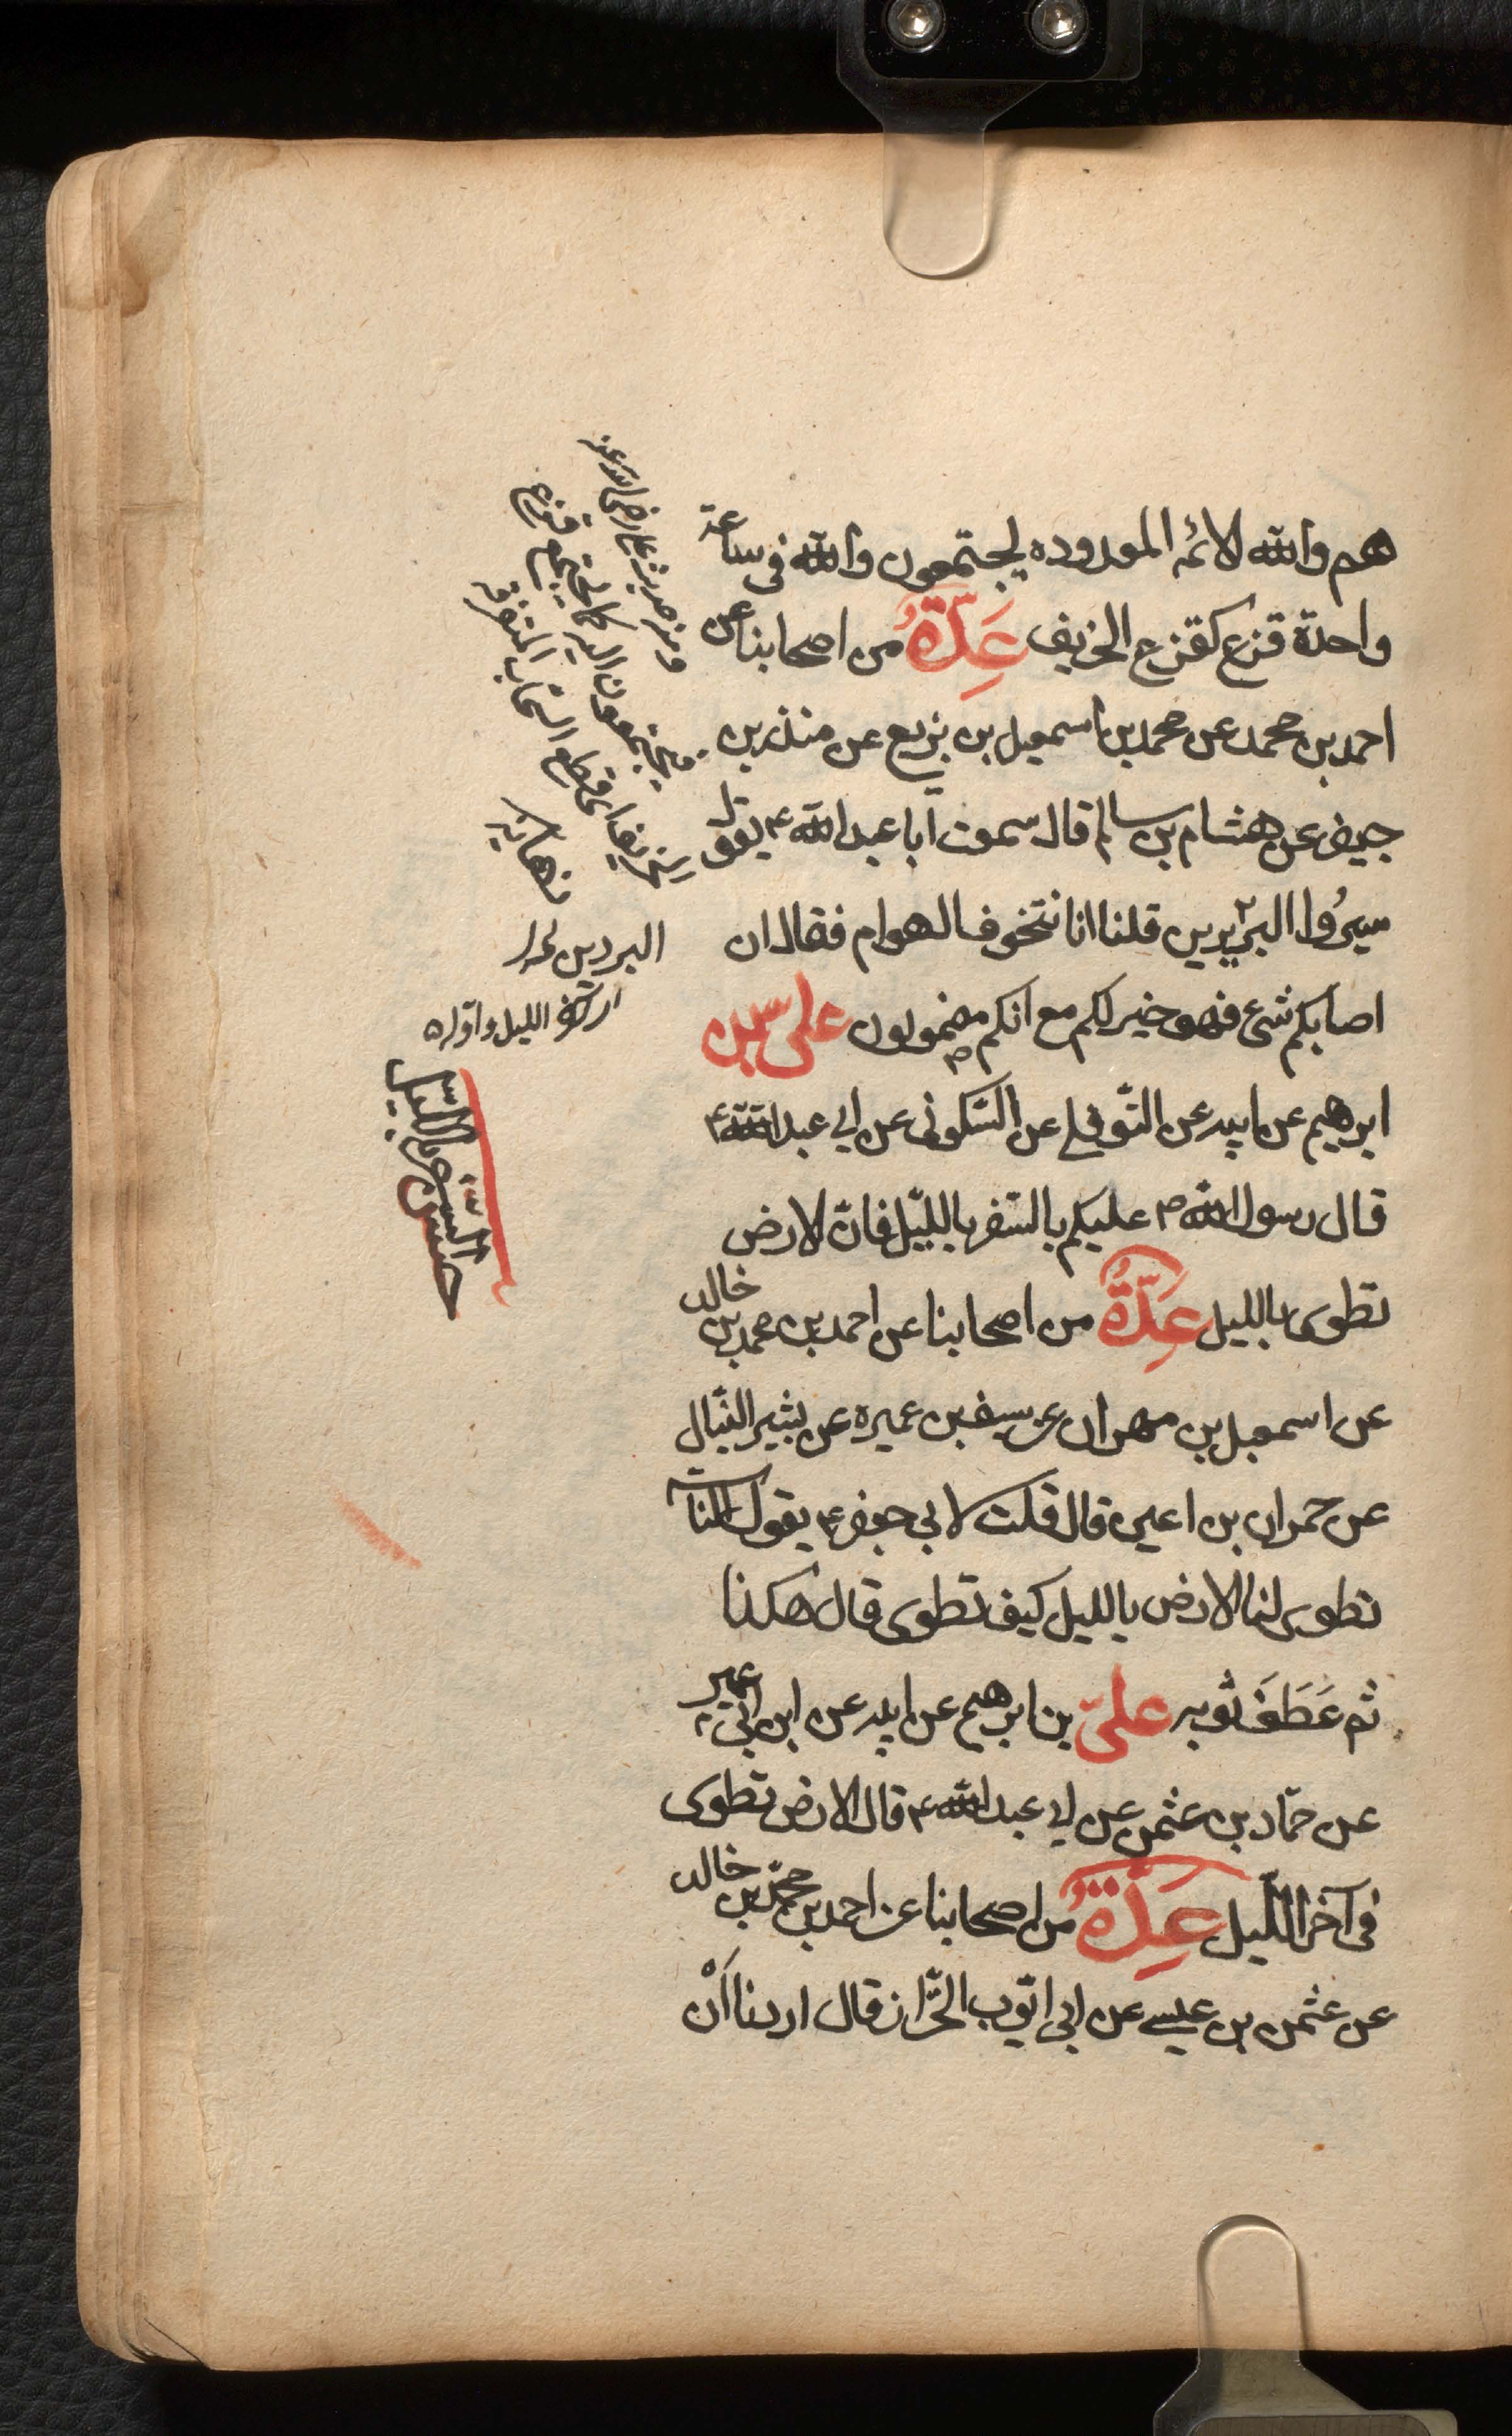 هم والله الائمه المعدوده يجتمعون والله فى ساعة
واحدة قزع كقزع الخريف عِدَّةٌ من اصحابنا عن
احمد بن محمد عن محمد بن اسمعيل بن بزيع عن منذر بن
جيفر عن هشام بن سالم قال سمعت ابا عبد الله ع يقول
سيرُوا البردين قلنا انا نتخوف الهوام فقال ان
اصابكم شئ فهو خير لكم مع انكم مضمونون على بن
ابرهيم عن ابيه عن النّوفلى عن السّكونى عن ابى عبد الله ع
قال رسول الله ص عليكم بالسّفر باللّيل فانّ الارض
تطوى بالليل عِدَّةٌ من اصحابنا عن احمد بن محمد بن خالد
عن اسمعيل بن مهران عن سيف بن عميره عن بشير النبّال
عن حمران بن اعين قال قلت لابى جعفر ع يقول الناس
تطوى لنا الارض بالليل كيف تطوى قال هكذا
ثم عَطَفَ ثوبه علىّ بن ابرهيم عن ابيه عن ابن ابى عمير
عن حمّاد بن عثمن عن ابى عبد الله ع قال الارض تطوى
فى آخر اللّيل عِدَّةٌ من اصحابنا عن احمد بن محمّد بن خالد
عن عثمن بن عيسى عن ابى ايّوب الخزّاز قال اردنا اَنْ
ومنه حديث على رضى الله عنه
فيجتمعون اليه كما يجتمع قزع
الخريف اى قطع السّحاب المتفرقة
نهايه
البردين
آخر الليل واوله
حسن السّفر باللّيل